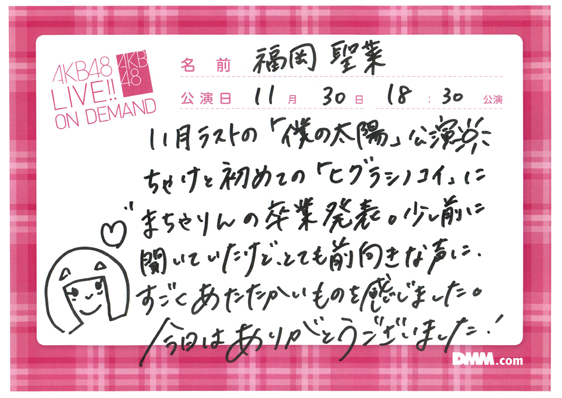 AKB48
LIVE!!
ON DEMAND
AKB
48
名 前 福岡 聖菜
公演日 11月 30日 18:30 公演
11月ラストの「僕の太陽」公演
ちゃけと初めての「ヒグラシノコイ」に
まちゃりんの卒業発表。少し前に
聞いていたけど、とても前向きな声に、
すごくあたたかいものを感じました。
今日はありがとうございました!
DMM.com